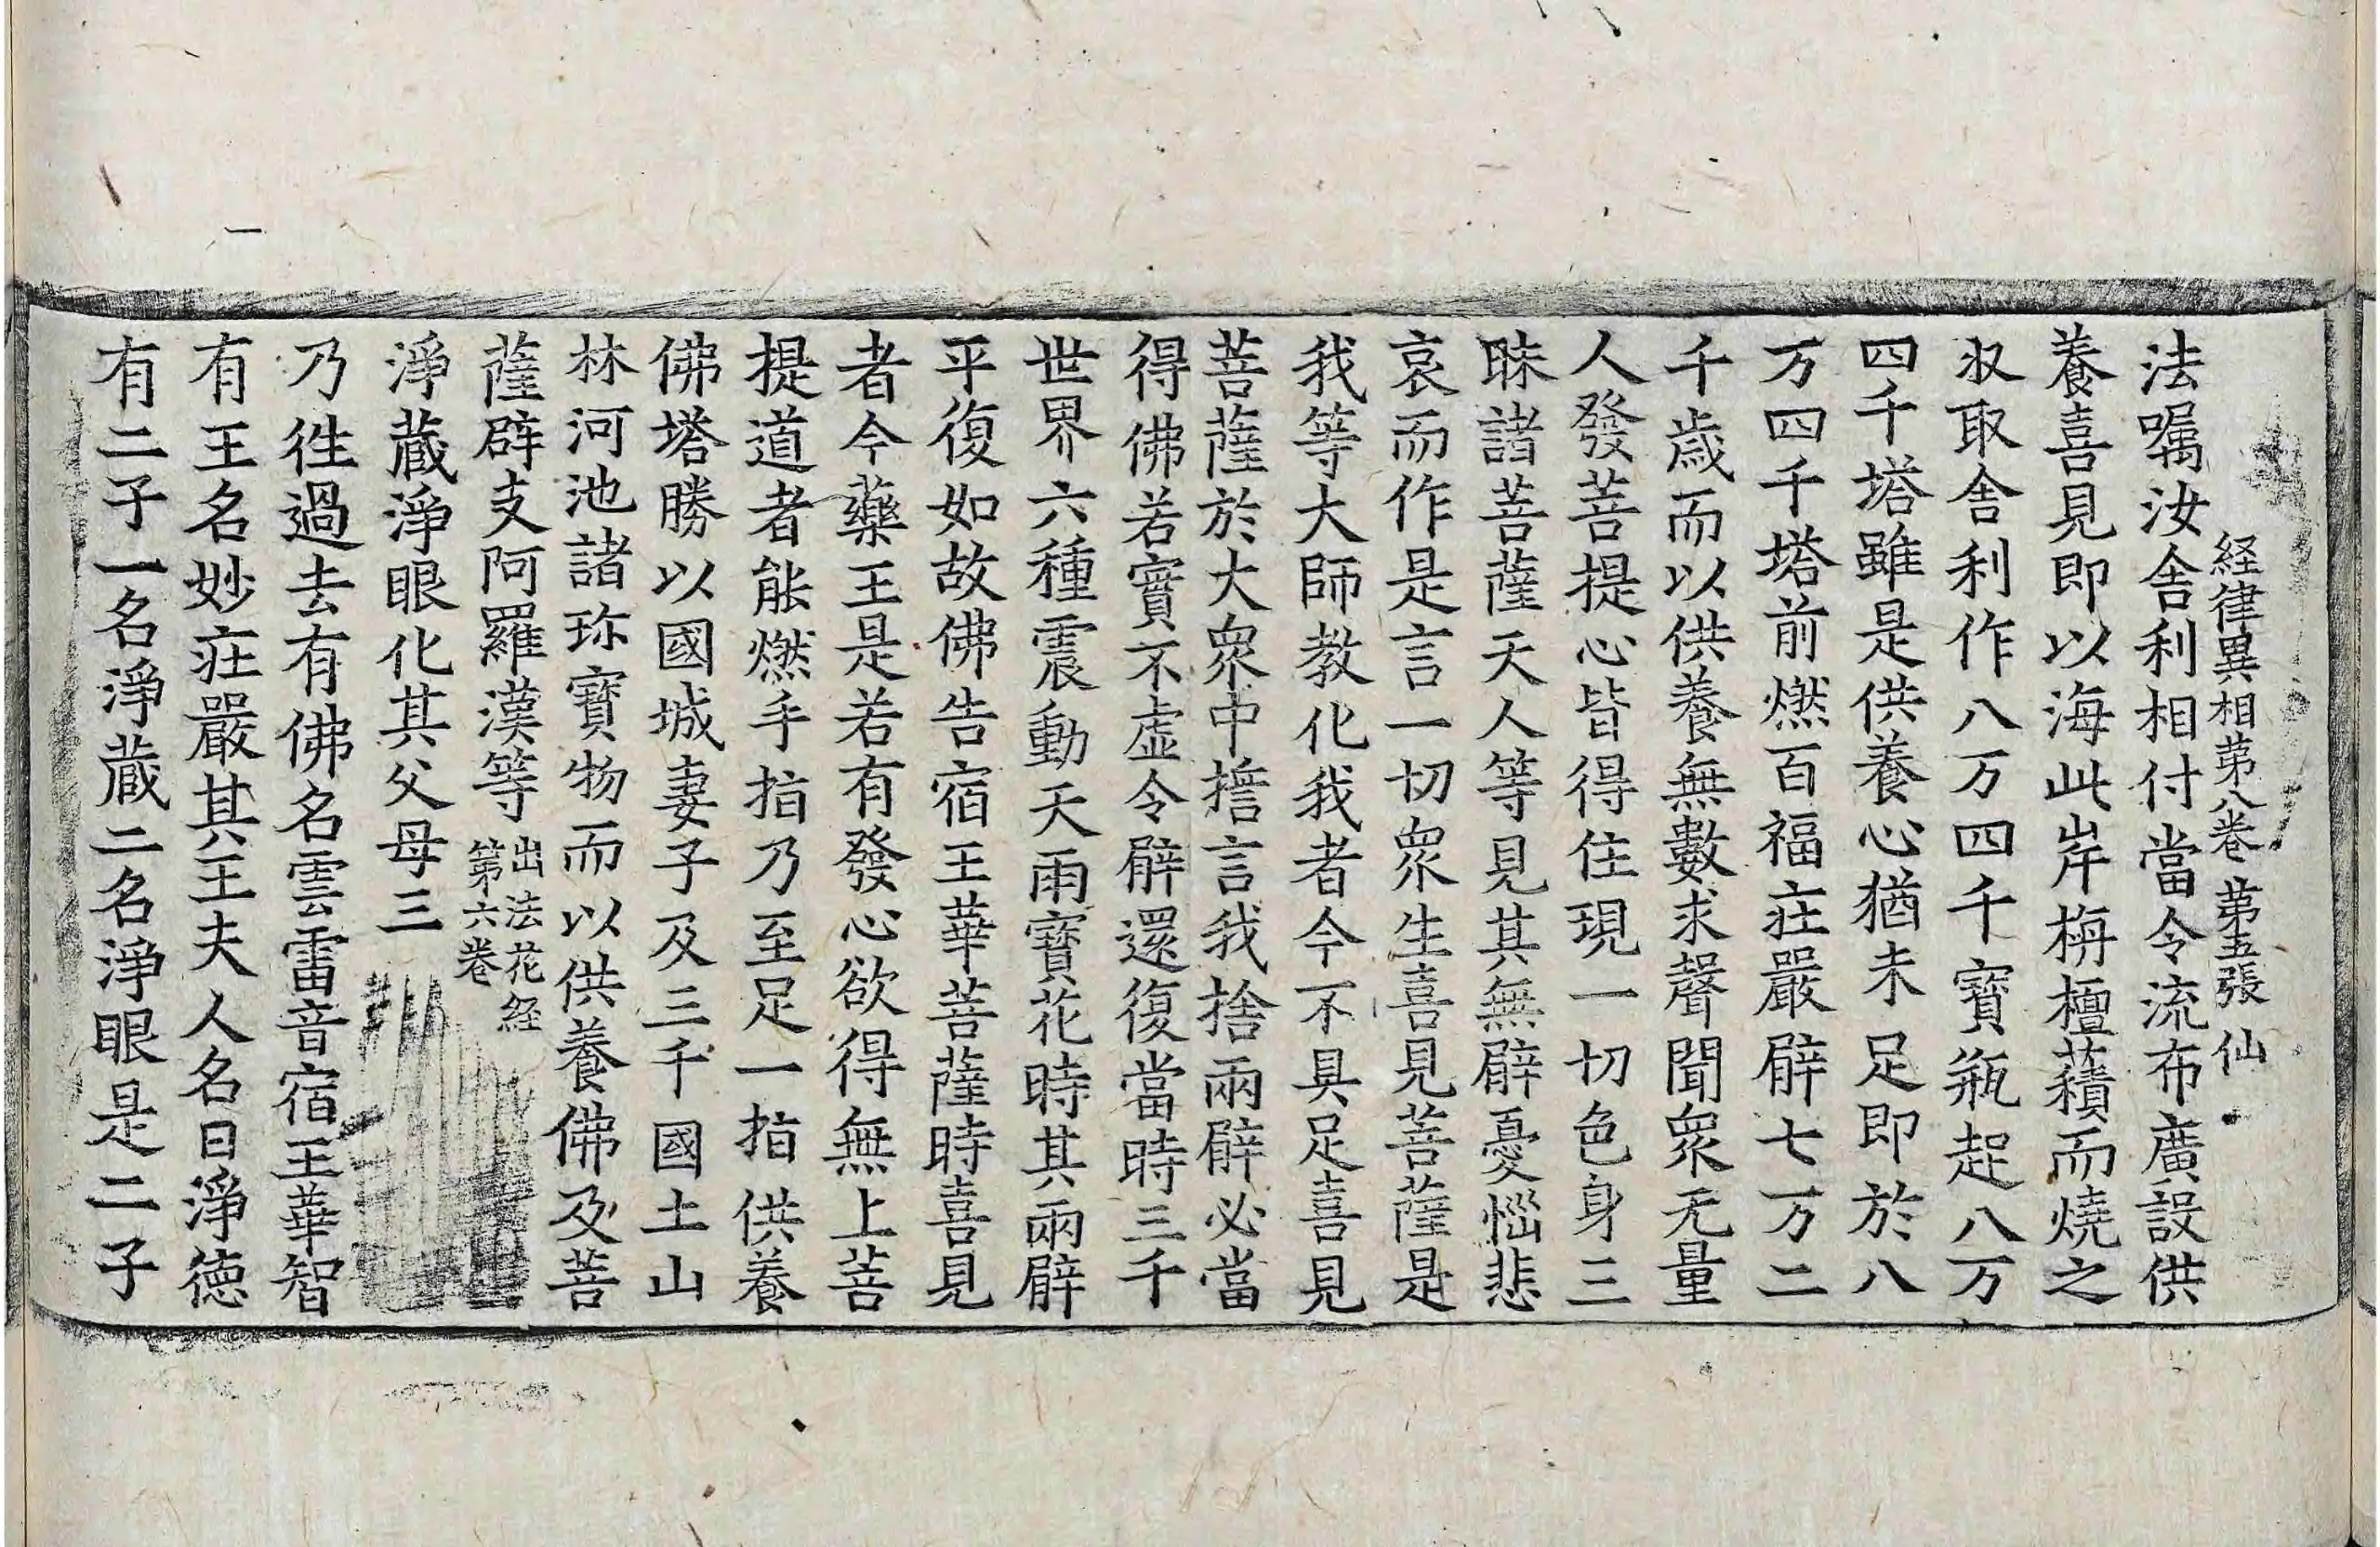 経律異相苐八巻 苐五張 仙
法囑汝舎利相付當令流布廣設供
養喜見即以海此岸栴檀𧂐而燒之
収取舎利作八万四千寶瓶起八万
四千塔雖是供養心猶未足即於八
万四千塔前燃百福㽵嚴臂七万二
千歳而以供養無數求聲聞衆无量
人發菩提心皆得住現一切色身三
昧諸菩薩天人等見其無臂憂惱悲
哀而作是言一切衆生喜見菩薩是
我等大師教化我者今不具足喜見
菩薩於大衆中擔言我捨兩臂必當
得佛若實不虚令臂還復當時三千
世界六種震動天雨寶花時其兩臂
平復如故佛告宿王華菩薩時喜見
者今藥王是若有發心欲得無上菩
提道者能燃手指乃至足一指供養
佛塔勝以國城妻子及三千國土山
林河池諸珎寶物而以供養佛及菩
薩辟支阿羅漢等 出法花経第六巻
淨蔵淨眼化其父母三
乃徃過去有佛名雲雷音宿王華智
有王名妙㽵嚴其王夫人名曰淨德
有二子一名淨蔵二名淨眼是二子